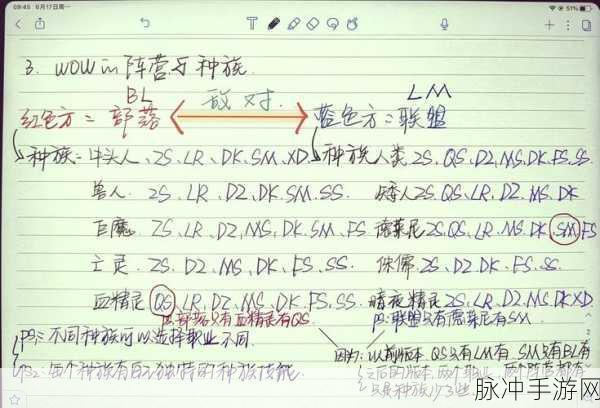 09:45 6月17日周一
51%
3. WOW的阵营与种族.
BL 敌对. LM
红色方=部落 蓝色方=联盟
种族=牛头人、ZS、LR、DK、SM、XD.
兽人. ZS、LR、DZ、DK、SM、SS.
巨魔. ZS、LR、DZ、MS、DK、SM、FS
亡灵. ZS、DZ、MS、DK、FS、SS.
血精灵 QS、LR、DZ、MS、DK、FS、SS.
部落只有血精灵有QS
种族 人类. ZS、QS、DZ、MS、DK、FS、SS.
矮人 ZS、QS、LR、DZ、MS、DK
德莱尼 ZS、QS、LR、MS、DK、SM、FS
侏儒. ZS、DZ、DK、FS、SS.
暗夜精灵 ZS、LR、DZ、MS、DK、XD.
PS:联盟只有德莱尼有SM.
PS1:不同种族可以选择职业不同.
PS2:每个种族有自己独特的种族技能.
因为:以前版本QS只有LM有、SM只有BL有
之后的版本,两个职业,两个阵营都有
只是种族少了些.
脉冲手游网